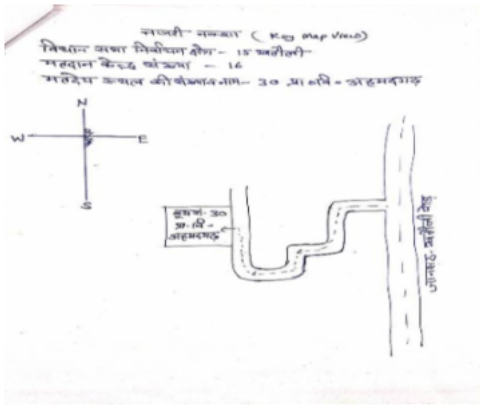 नजरी नक्शा (Key Map View)
विधान सभा निर्वाचन क्षेत्र - 15 खतौली
मतदान केन्द्र संख्या - 16
मतदेय स्थल की संख्या व नाम - 30 प्रा० वि० - अहमदगढ़
N
W
E
S
बूथ सं- 30
प्रा- वि -
अहमदगढ़
जानसठ- खतौली रोड़